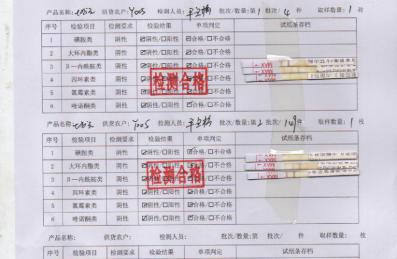 产品名称: 供货农户: Y005 检测人员: 批次/数量:第1 批次/ 4 件 取样数量: 1 枚
序号 检验项目 检测要求 检验结果 单项判定 试纸条存档
1 磺胺类 阴性 ☑阴性/☐阳性 ☑合格/☐不合格
2 大环内酯类 阴性 ☑阴性/☐阳性 ☑合格/☐不合格
3 β-内酰胺类 阴性 ☑阴性/☐阳性 ☑合格/☐不合格
4 四环素类 阴性 ☑阴性/☐阳性 ☑合格/☐不合格
5 氯霉素类 阴性 ☑阴性/☐阳性 ☑合格/☐不合格
6 喹诺酮类 阴性 ☑阴性/☐阳性 ☑合格/☐不合格
检测合格
产品名称: 供货农户: Y005 检测人员: 批次/数量:第2 批次/ 件 取样数量: 1 枚
序号 检验项目 检测要求 检验结果 单项判定 试纸条存档
1 磺胺类 阴性 ☑阴性/☐阳性 ☑合格/☐不合格
2 大环内酯类 阴性 ☑阴性/☐阳性 ☑合格/☐不合格
3 β-内酰胺类 阴性 ☑阴性/☐阳性 ☑合格/☐不合格
4 四环素类 阴性 ☑阴性/☐阳性 ☑合格/☐不合格
5 氯霉素类 阴性 ☑阴性/☐阳性 ☑合格/☐不合格
6 喹诺酮类 阴性 ☑阴性/☐阳性 ☑合格/☐不合格
检测合格
产品名称: 供货农户: 检测人员: 批次/数量:第 批次/ 件 取样数量: 枚
序号 检验项目 检测要求 检验结果 单项判定 试纸条存档